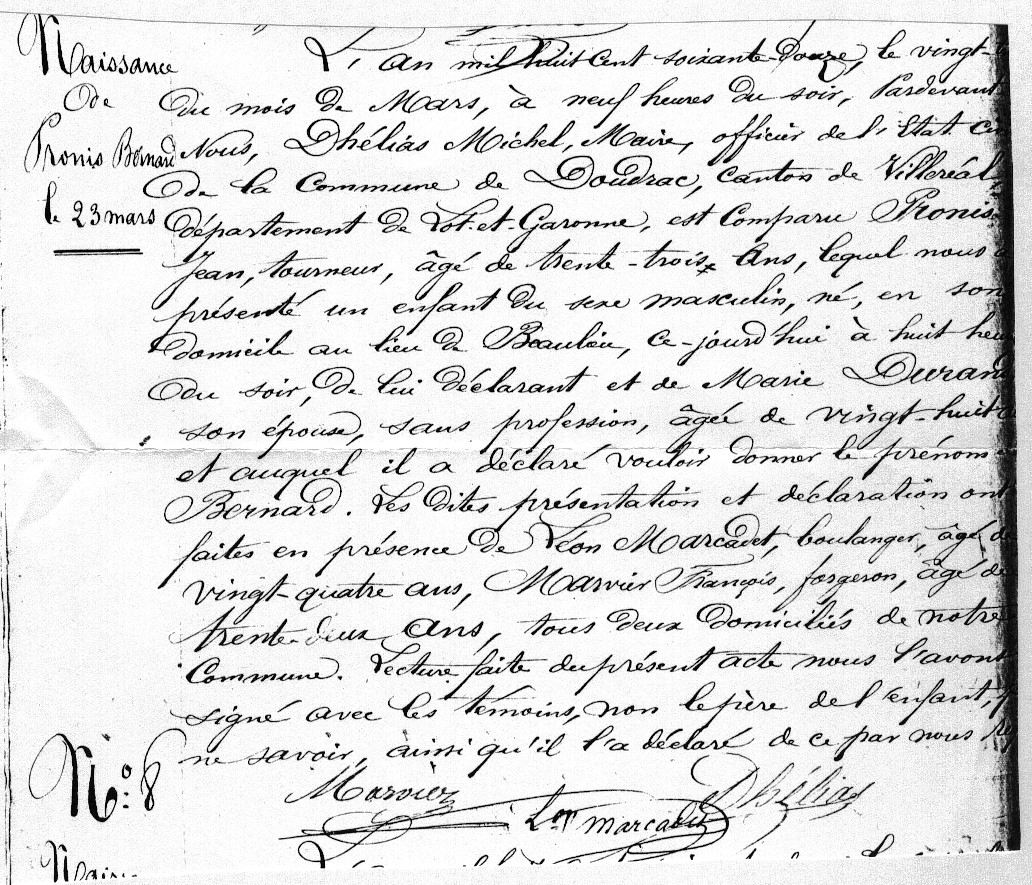 Naissance
de
Pronis Bernard
le 23 mars
L'an mil huit cent soixante-douze, le vingt-
du mois de Mars, à neuf heures du soir, Pardevant
Nous, Dhélias Michel, Maire, officier de l'Etat Ci
de la Commune de Doudrac, canton de Villeréal,
département de Lot-et-Garonne, est comparu Pronis
Jean, tourneur, âgé de trente-trois ans, lequel nous a
présenté un enfant du sexe masculin, né, en son
domicile au lieu de Beaulieu, ce-jourd'hui à huit heu
du soir, de lui déclarant et de Marie Durand
son épouse, sans profession, âgée de vingt-huit a
et auquel il a déclaré vouloir donner le prénom
Bernard. Les dites présentation et déclaration ont
faites en présence de Léon Marcadet, boulanger, âgé de
vingt-quatre ans, Marvier François, forgeron, âgé de
trente-deux ans, tous deux domiciliés de notre
Commune. Lecture faite du présent acte nous l'avons
signé avec les témoins, non le père de l'enfant, p
ne savoir, ainsi qu'il l'a déclaré de ce par nous
N° 8
Marvier
Dhélias
Léon Marcadet